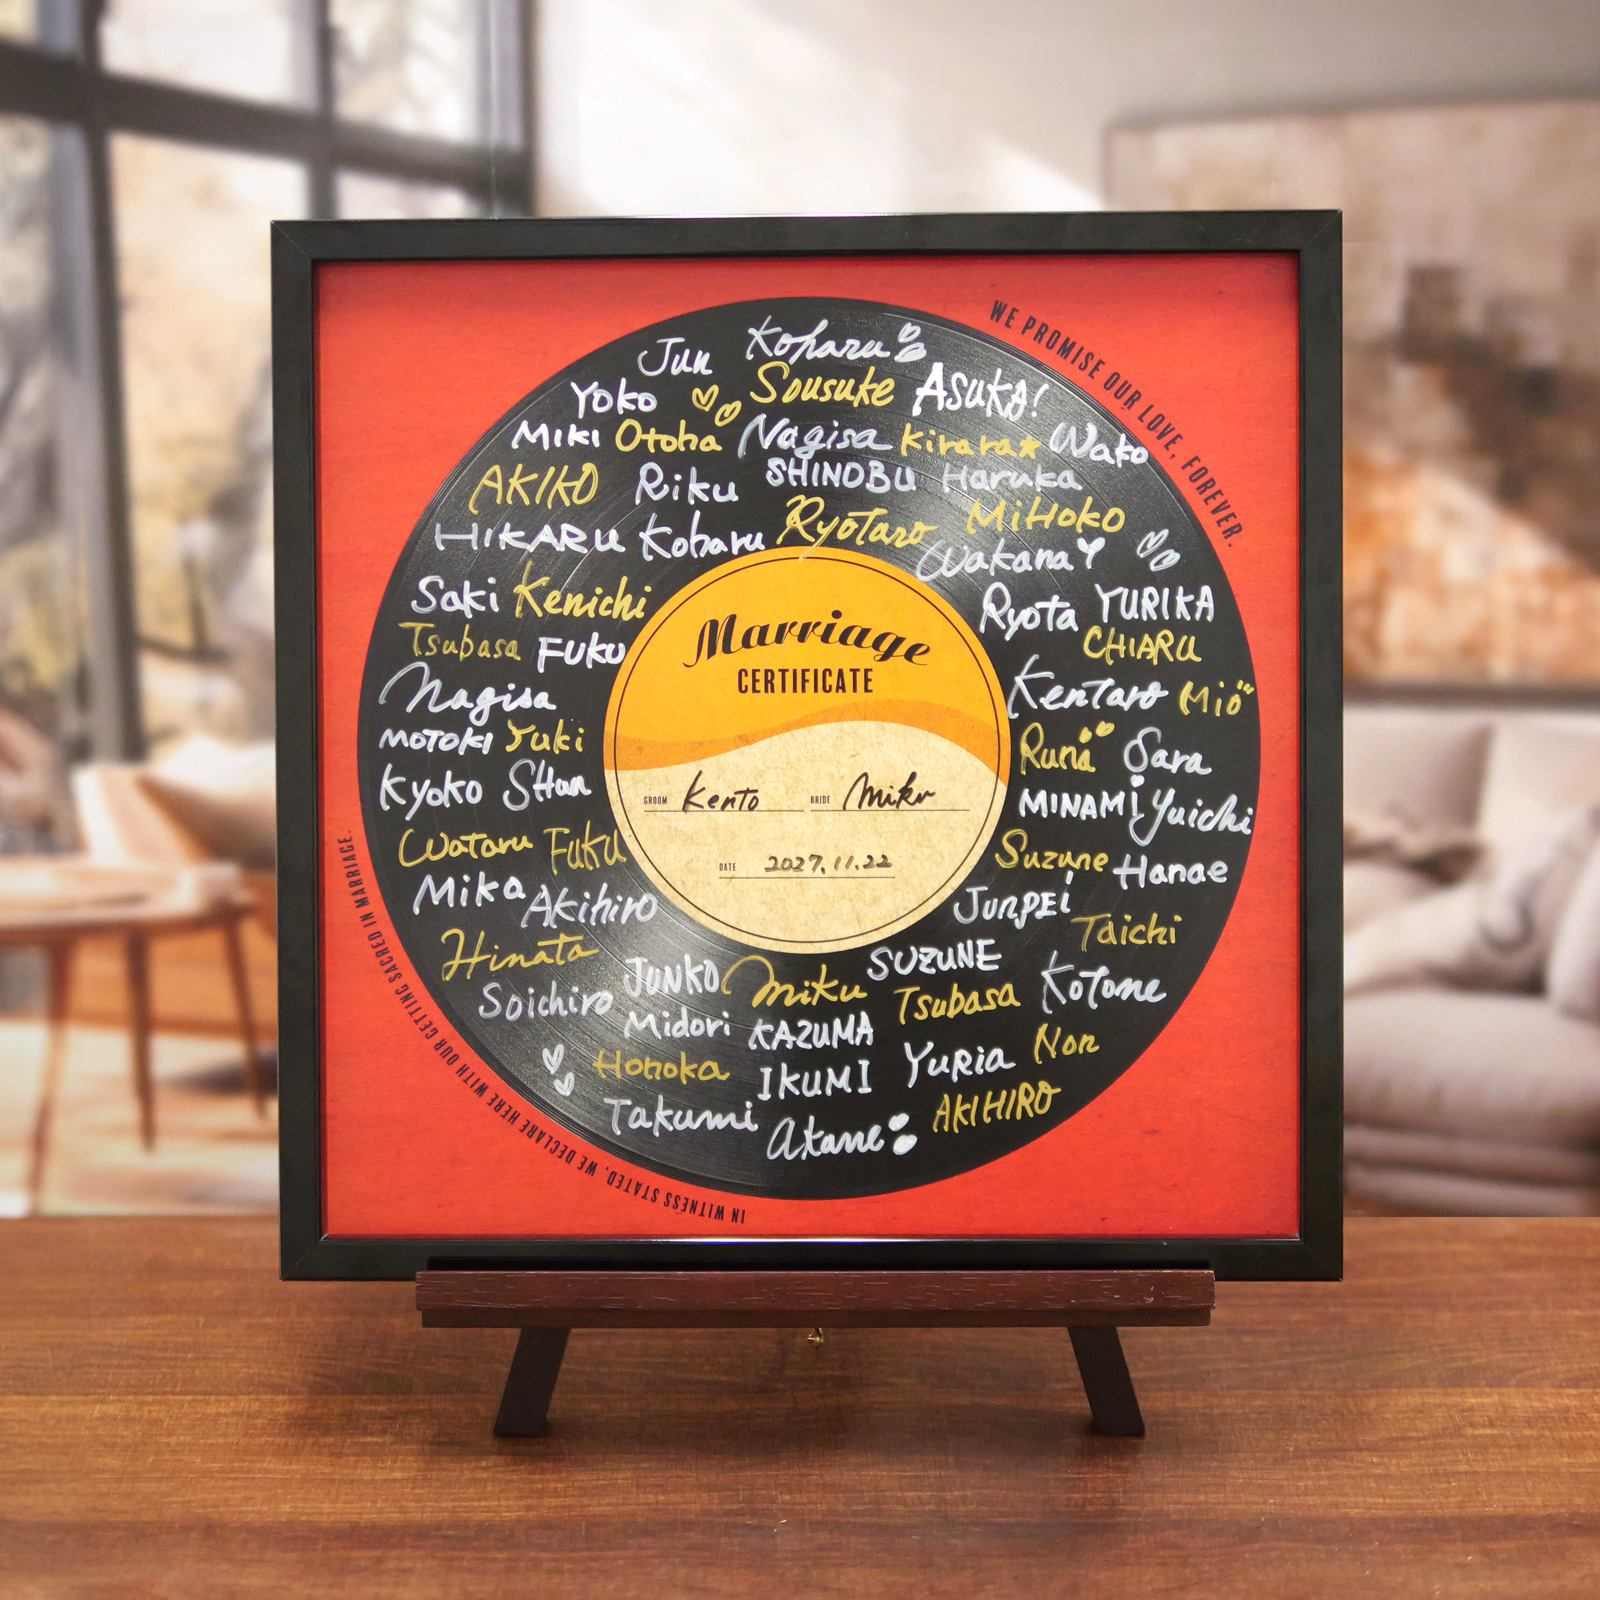 WE PROMISE OUR LOVE, FOREVER.
Jun Koharu
Yoko Sousuke ASUKA!
MIKI Otoha Nagisa Kirara★ Wako
AKIKO Riku SHINOBU Haruka
HIKARU Koharu Ryotaro MiHoko
Wakana
Saki Kenichi Ryota YURIKA
Tsubasa FUKU CHIARU
Nagisa Kentaro Mio
MOTOKI Yuki Runa Sara
Kyoko Shun MINAMi Yuichi
Wataru FUKU Suzune Hanae
Mika Akihiro JunpEi
Hinata Taichi
JUNKO Miku SUZUNE
Soichiro Tsubasa Kotone
Midori KAZUMA
Honoka IKUMI YuRia Non
Takumi Akane AKIHIRO
Marriage
CERTIFICATE
GROOM Kento BRIDE Miku
DATE 2027.11.22
IN WITNESS STATED, WE DECLARE HERE WITH OUR GETTING SACRED IN MARRIAGE.